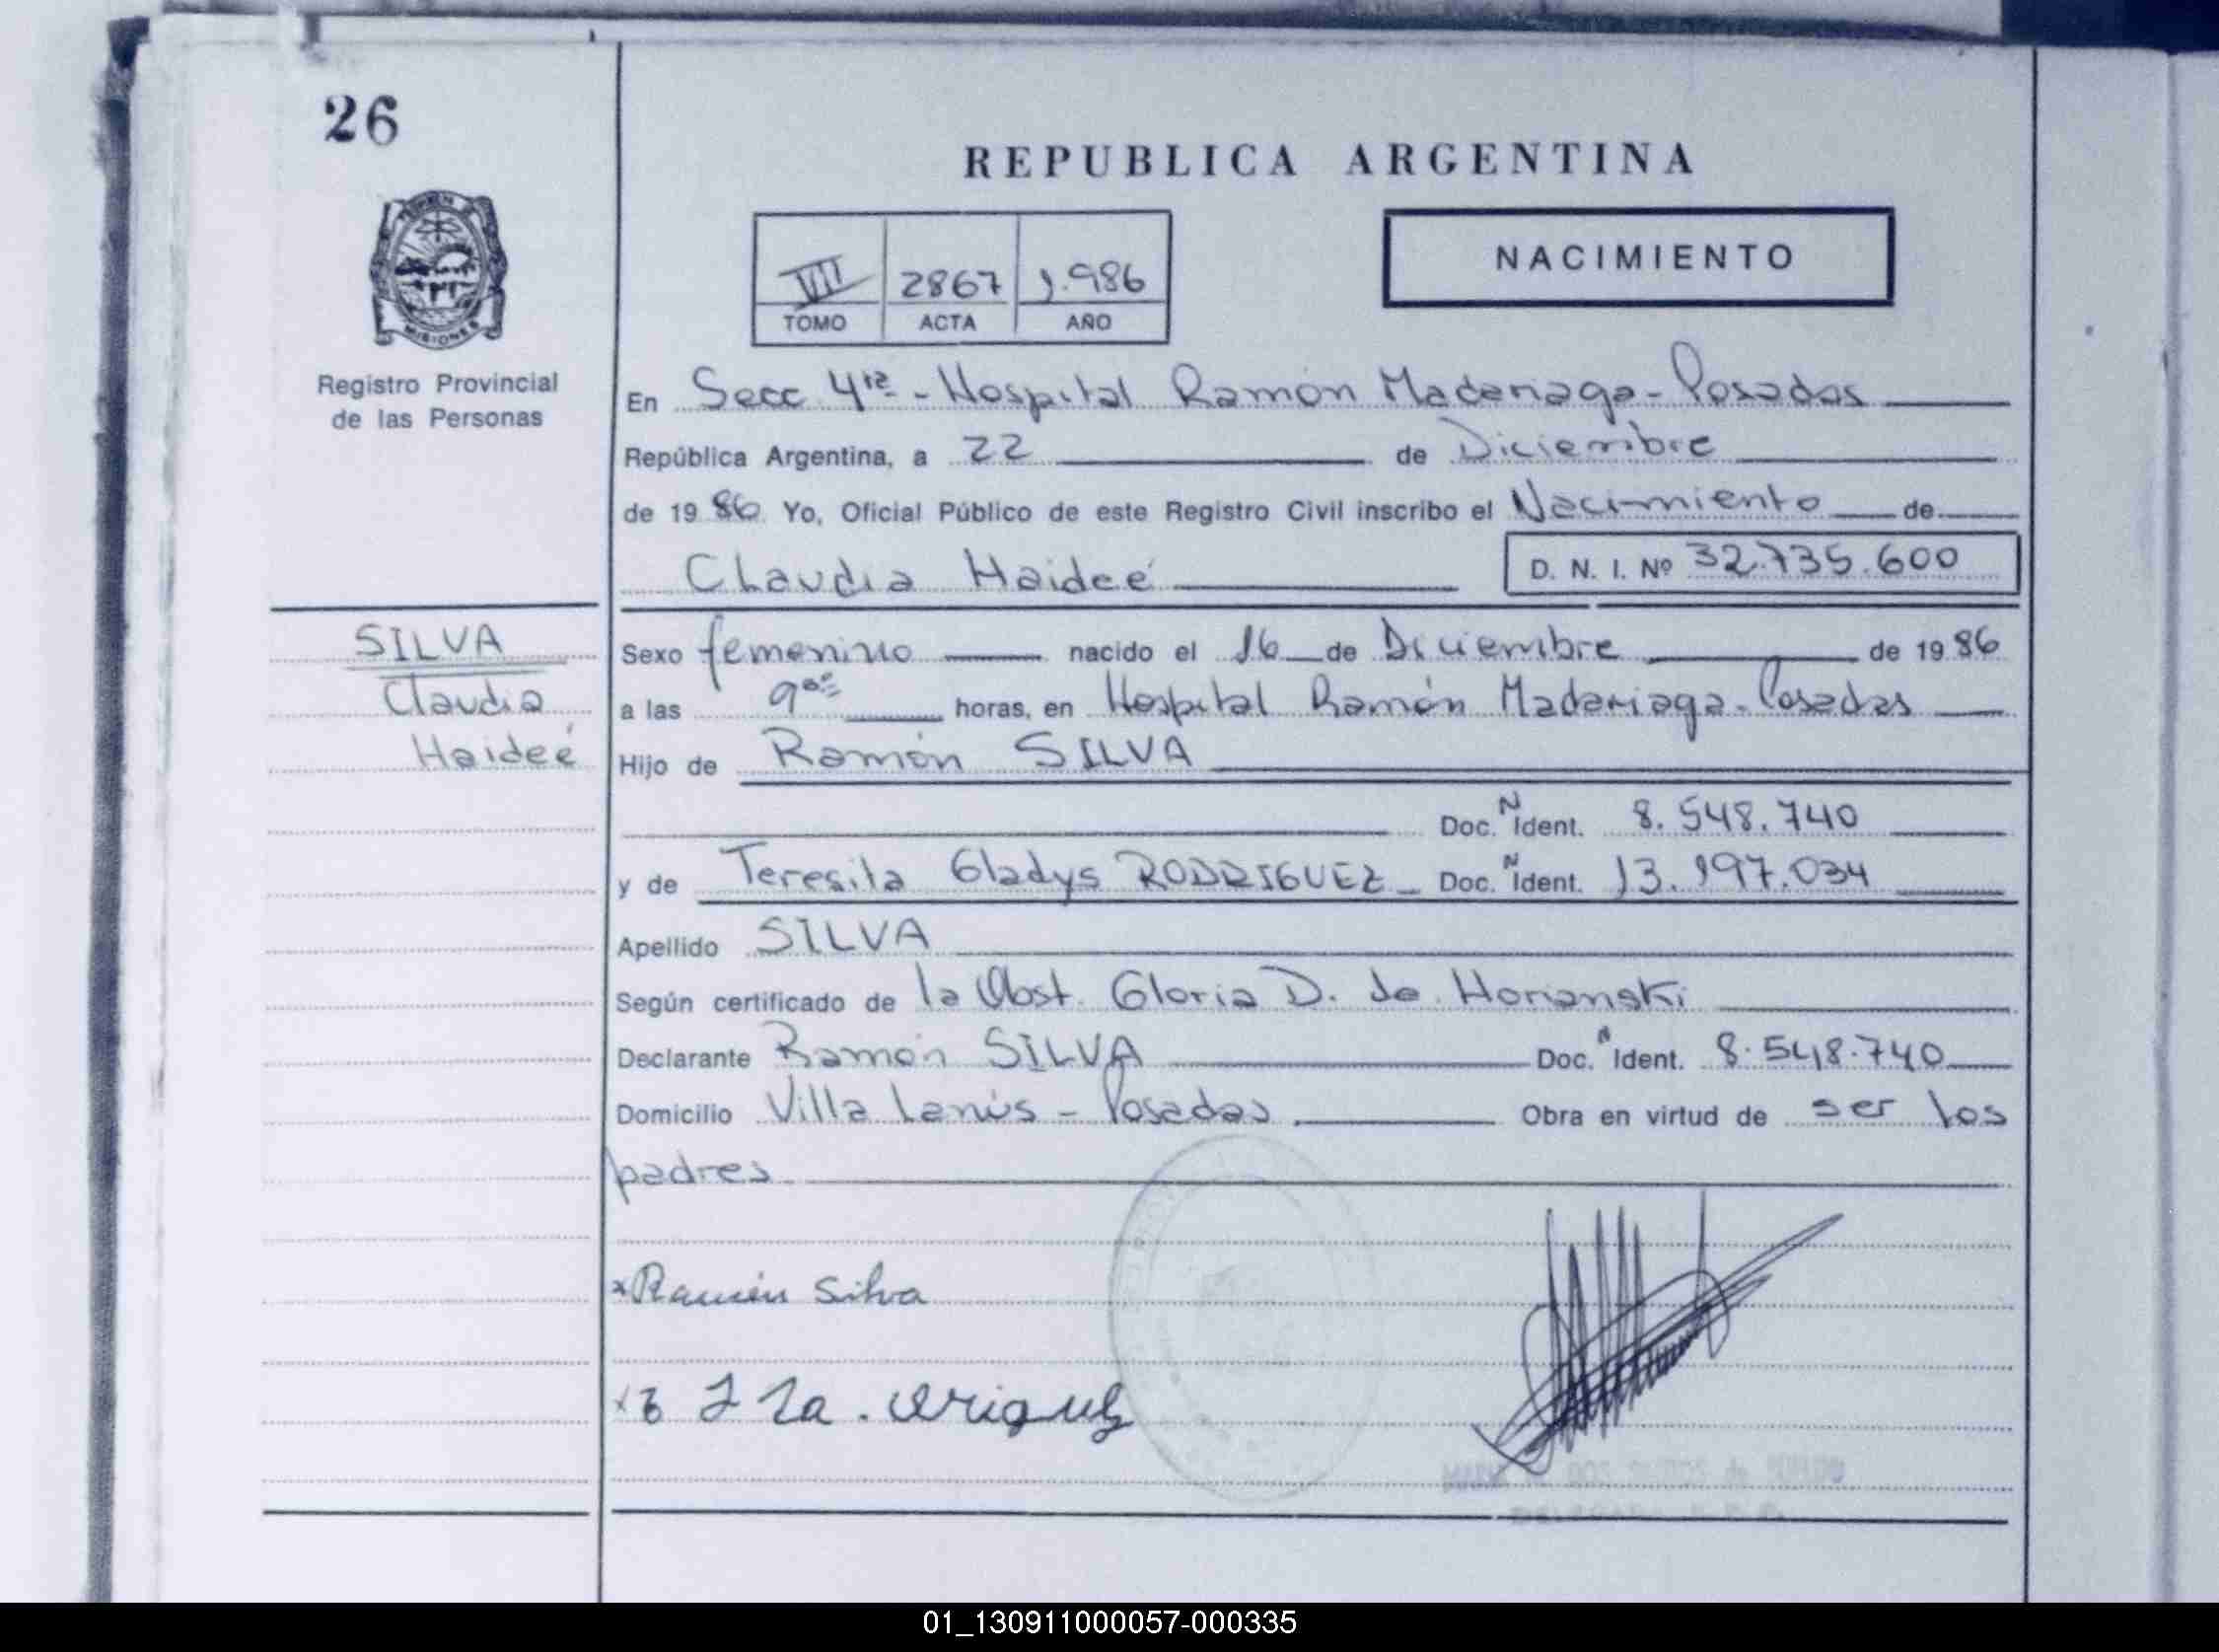 26
REPUBLICA ARGENTINA
VII 2867 1.986
TOMO ACTA AÑO
NACIMIENTO
MISIONES
Registro Provincial
de las Personas
En Secc 4ta - Hospital Ramon Madariaga - Posadas
República Argentina, a 22 de Diciembre
de 19 86 Yo, Oficial Público de este Registro Civil inscribo el Nacimiento de
Claudia Haideé D. N. I. Nº 32.735.600
SILVA
Claudia
Haideé
Sexo femenino nacido el 16 de Diciembre de 19 86
a las 9 horas, en Hospital Ramón Madariaga - Posadas
Hijo de Ramón SILVA
Doc. N Ident. 8.548.740
y de Teresita Gladys RODRIGUEZ Doc. N Ident. 13.197.034
Apellido SILVA
Según certificado de la Obst. Gloria D. de Horianski
Declarante Ramón SILVA Doc. N Ident. 8.548.740
Domicilio Villa Lanús - Posadas Obra en virtud de ser los
padres
x Ramón Silva
01_130911000057-000335